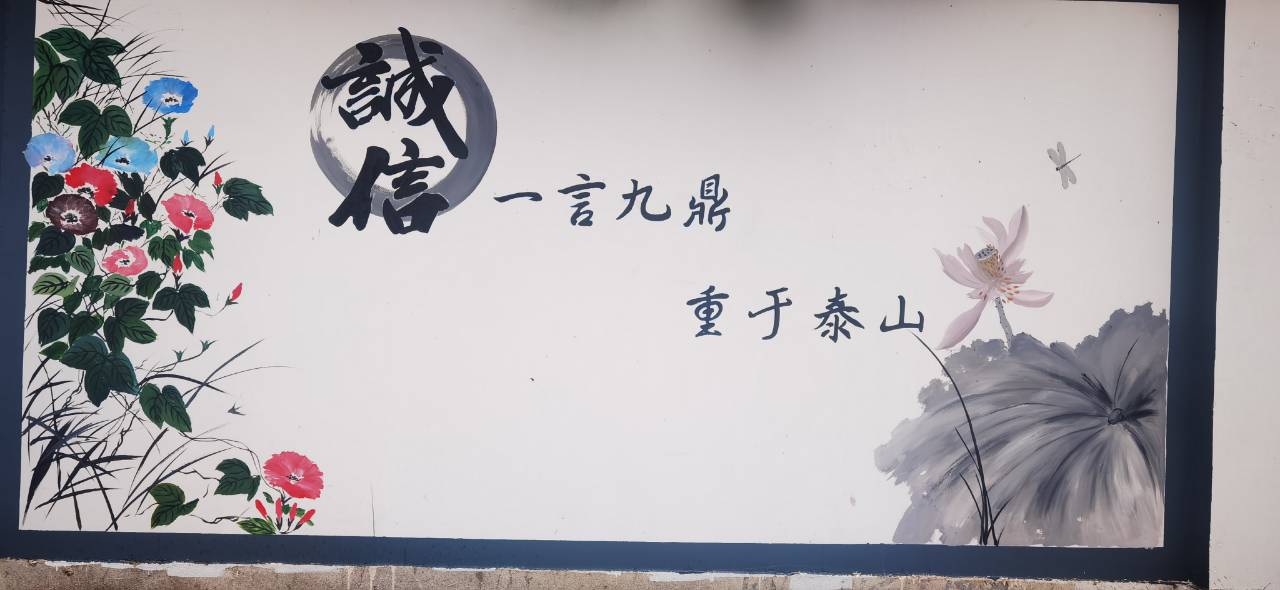 誠
信
一言九鼎
重于泰山